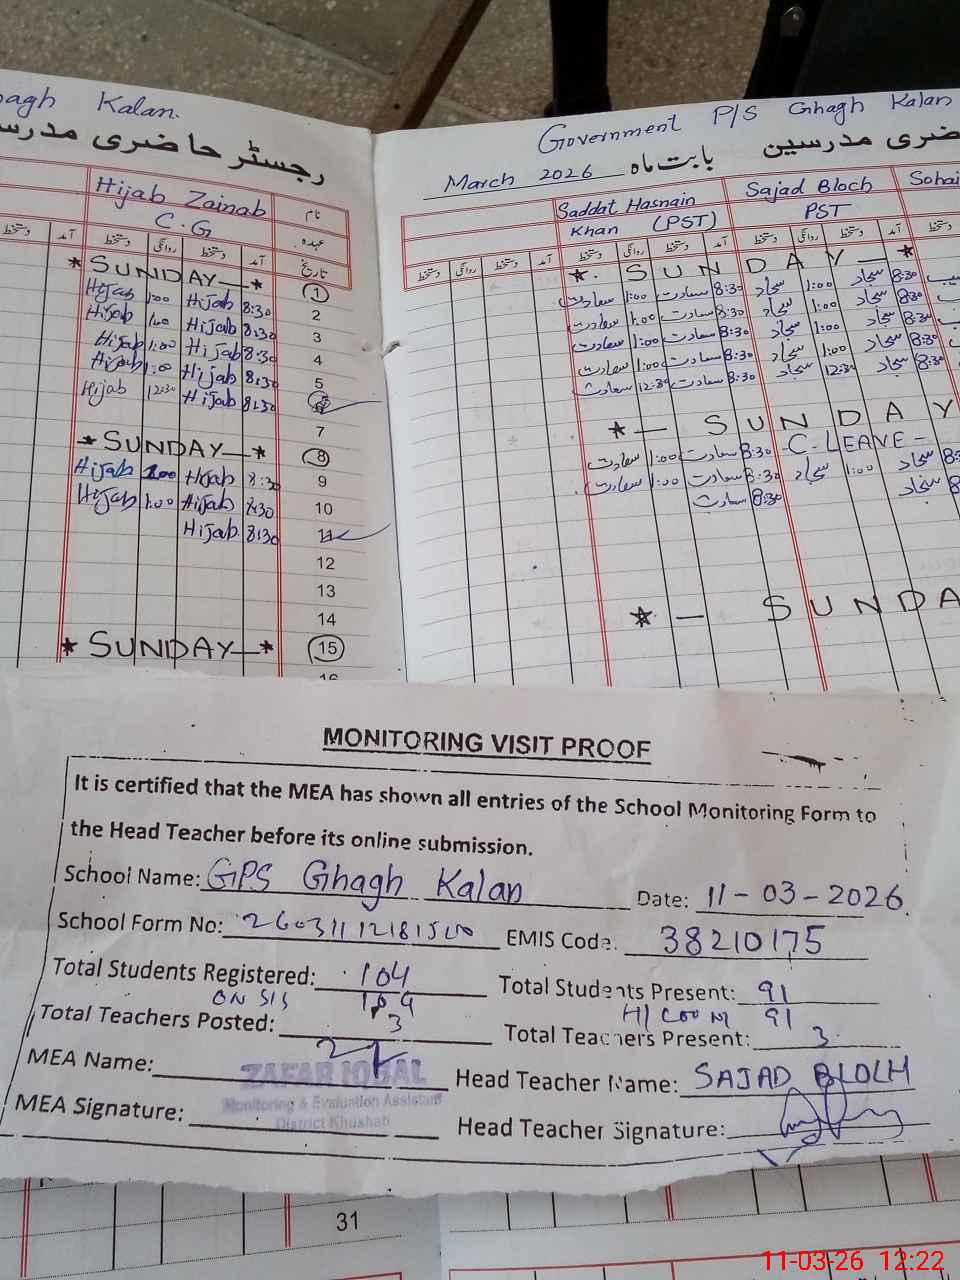 hagh Kalan.
رجسٹر حاضری مدرسین
Hijab Zainab
نام
C.G
عہدہ
دستخط آمد دستخط روانگی دستخط آمد تاریخ
* SUNDAY—* 1
Hijab 1:00 Hijab 8:30 2
Hijab 1:00 Hijab 8:30 3
Hijab 1:00 Hijab 8:30 4
Hijab 1:00 Hijab 8:30 5
Hijab 12:30 Hijab 8:30 6
7
* SUNDAY—* 8
Hijab 1:00 Hijab 8:30 9
Hijab 1:00 Hijab 8:30 10
Hijab 8:30 11
12
13
14
* SUNDAY—* 15
16
Government P/S Ghagh Kalan
حاضری مدرسین بابت ماه March 2026
Saddat Hasnain Khan (PST)
Sajad Bloch PST
Sohai
دستخط روانگی دستخط آمد دستخط روانگی دستخط آمد دستخط روانگی دستخط آمد دستخط
* SUNDAY—*
سعادت 1:00 سعادت 8:30 سجاد 1:00 سجاد 8:30
سعادت 1:00 سعادت 8:30 سجاد 1:00 سجاد 8:30
سعادت 1:00 سعادت 8:30 سجاد 1:00 سجاد 8:30
سعادت 1:00 سعادت 8:30 سجاد 1:00 سجاد 8:30
سعادت 12:30 سعادت 8:30 سجاد 12:30 سجاد 8:30
* — SUNDAY
سعادت 1:00 سعادت 8:30 - C-LEAVE -
سعادت 1:00 سعادت 8:30 سجاد 1:00 سجاد 8:30
سعادت 8:30 سجاد 8:30
* — SUNDA
MONITORING VISIT PROOF
It is certified that the MEA has shown all entries of the School Monitoring Form to
the Head Teacher before its online submission.
School Name: GPS Ghagh Kalan Date: 11-03-2026.
School Form No: EMIS Code. 38210175
Total Students Registered: 104 Total Students Present: 91
ON SIS 104 H/COUNT 91
Total Teachers Posted: 3 Total Teachers Present: 3
MEA Name: ZAFAR IQBAL Head Teacher Name: SAJAD BLOCH
Monitoring & Evaluation Assistant
District Khushab
MEA Signature: Head Teacher Signature:
31
11-03-26 12:22